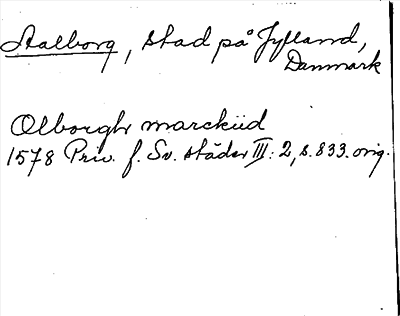 Aalborg, stad på Jylland,
Danmark
Olborgh marcküd
1578 Priv. f. Sv. städer III: 2, s. 833. orig.